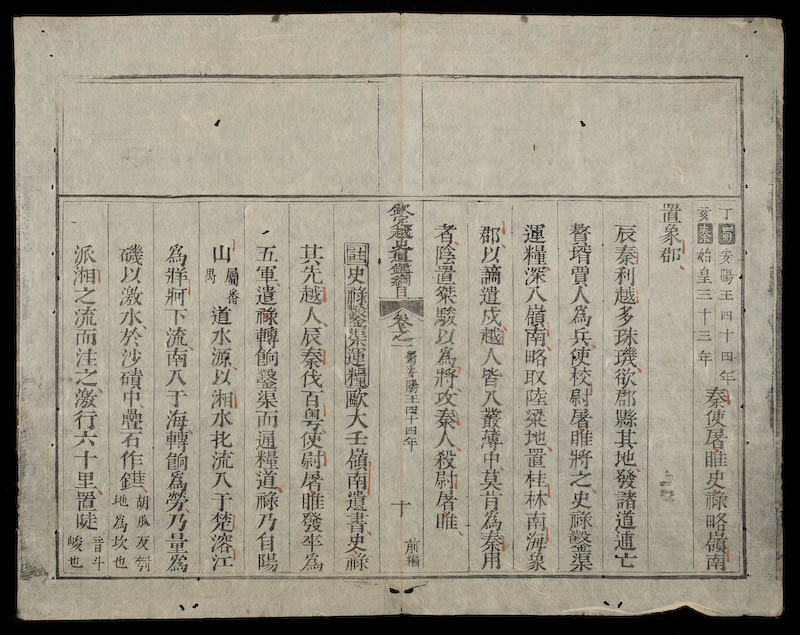 丁蜀安陽王四十四年
亥秦始皇三十三年
秦使屠睢史祿略嶺南
置象郡
辰秦利越多珠璣欲郡縣其地發諸道逋亡
贅壻賈人爲兵使校尉屠睢將之史祿鑿渠
運糧深入嶺南略取陸梁地置桂林南海象
郡以謫遣戍越人皆入叢薄中莫肯爲秦用
者陰置桀駿以爲將攻秦人殺尉屠睢
欽定越史通鑑綱目 卷之一 蜀安陽王四十四年 十 前編
註史祿鑿渠運糧歐大壬嶺南遺書史祿
其先越人辰秦伐百粵使尉屠睢發卒爲
五軍遣祿轉餉鑿渠而通糧道祿乃自陽
山屬番禺道水源以湘水北流入于楚溶江
爲牂牁下流南入于海轉餉爲勞乃量爲
磯以激水於沙磧中壘石作鏵胡瓜反刳地爲坎也
派湘之流而注之激行六十里置陡音斗峻也